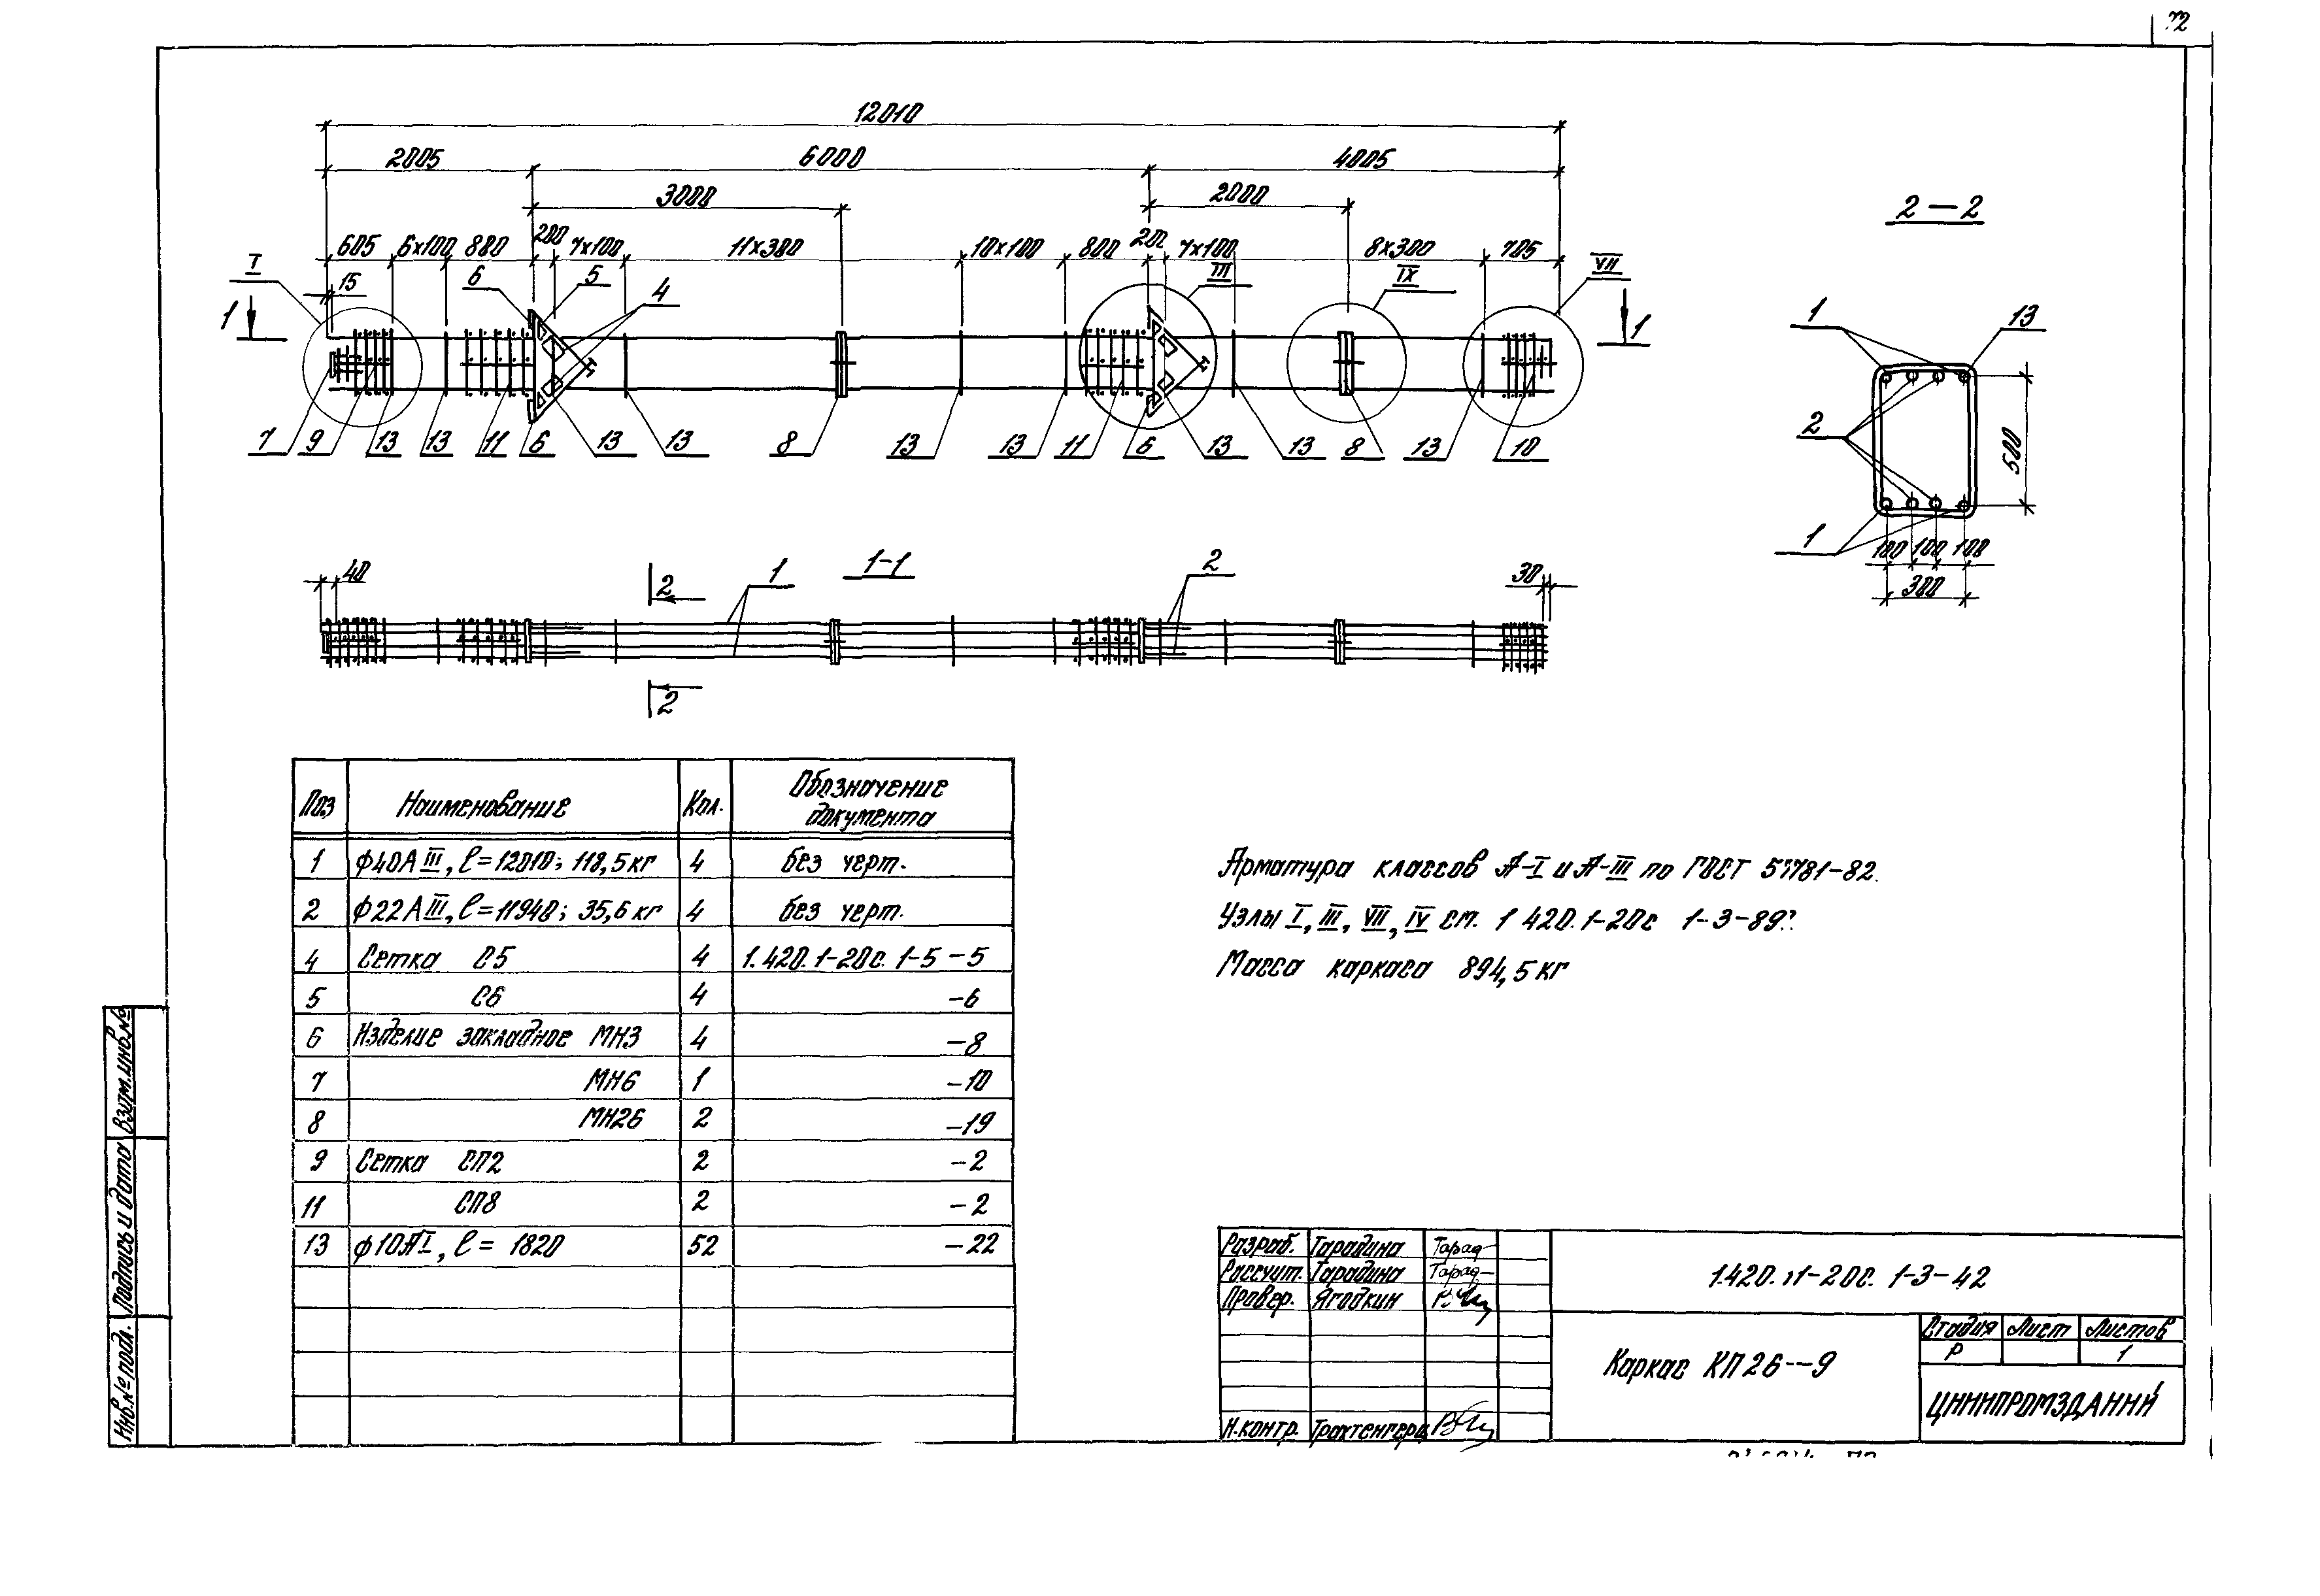 72
12010
2005 6000 4005
3000 2000
605 6х100 880 200 7х100 11х300 10х100 800 200 7х100 8х300 705
I 15 6 5 4 III IX VII
1 1
7 9 13 13 11 6 13 13 8 13 13 11 6 13 13 8 13 10
2—2
1 13
2
500
1
100 100 100
300
40 2 1 1-1 2 30
2
Поз Наименование Кол. Обозначение документа
1 ф40АIII, ℓ=12010; 118,5кг 4 без черт.
2 ф22АIII, ℓ=11940; 35,6кг 4 без черт.
4 Сетка С5 4 1.420.1-20с. 1-5 -5
5 С6 4 -6
6 Изделие закладное МН3 4 -8
7 МН6 1 -10
8 МН26 2 -19
9 Сетка СП2 2 -2
11 СП8 2 -2
13 ф10АI, ℓ= 1820 52 -22
Арматура классов А-I и А-III по ГОСТ 5781-82.
Узлы I, III, VII, IV см. 1 420.1-20с 1-3-89
Масса каркаса 894,5кг
Взам.инв.№
Подпись и дата
Инв.№ подл.
Разраб. Тарадина Тарад
Рассчит. Тарадина Тарад
Провер. Ягодкин
Н.контр. Трахтенгерц
1.420.1-20с. 1-3-42
Каркас КП26-9
Стадия Лист Листов
Р 1
ЦНИИПРОМЗДАНИЙ